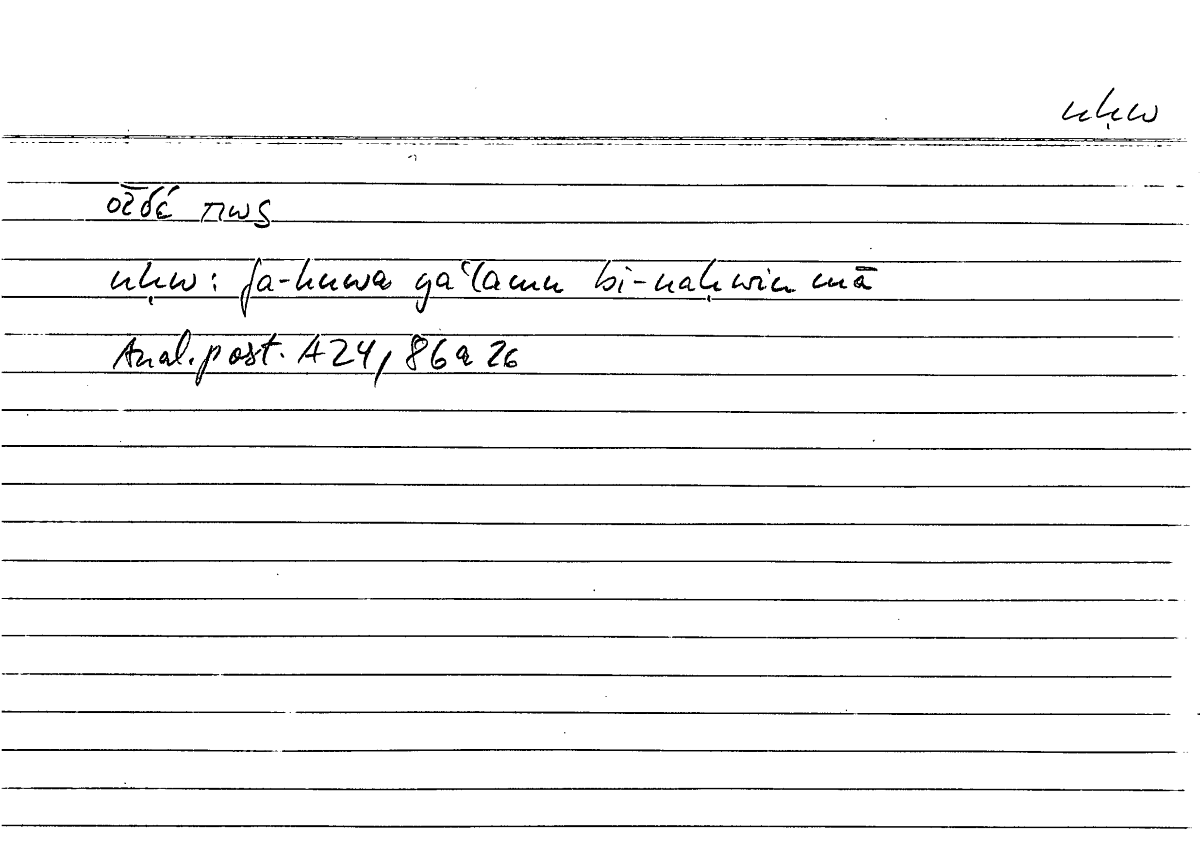 nḥw
οἶδέ πως
nḥw: fa-huwa yaʿlamu bi-naḥwin mā
Anal. post. A24, 86a26